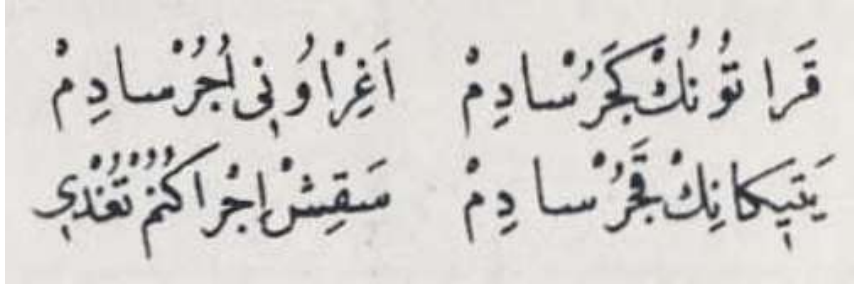 قَرا تُونُكْ كَجُرْسادِمْ اَغِرْ اوُنِى اُجُرْسادِمْ
يَتِيكانِكْ قَجُرْسادِمْ سَقِشْ اِجْرا كُنُمْ تُغْدِي